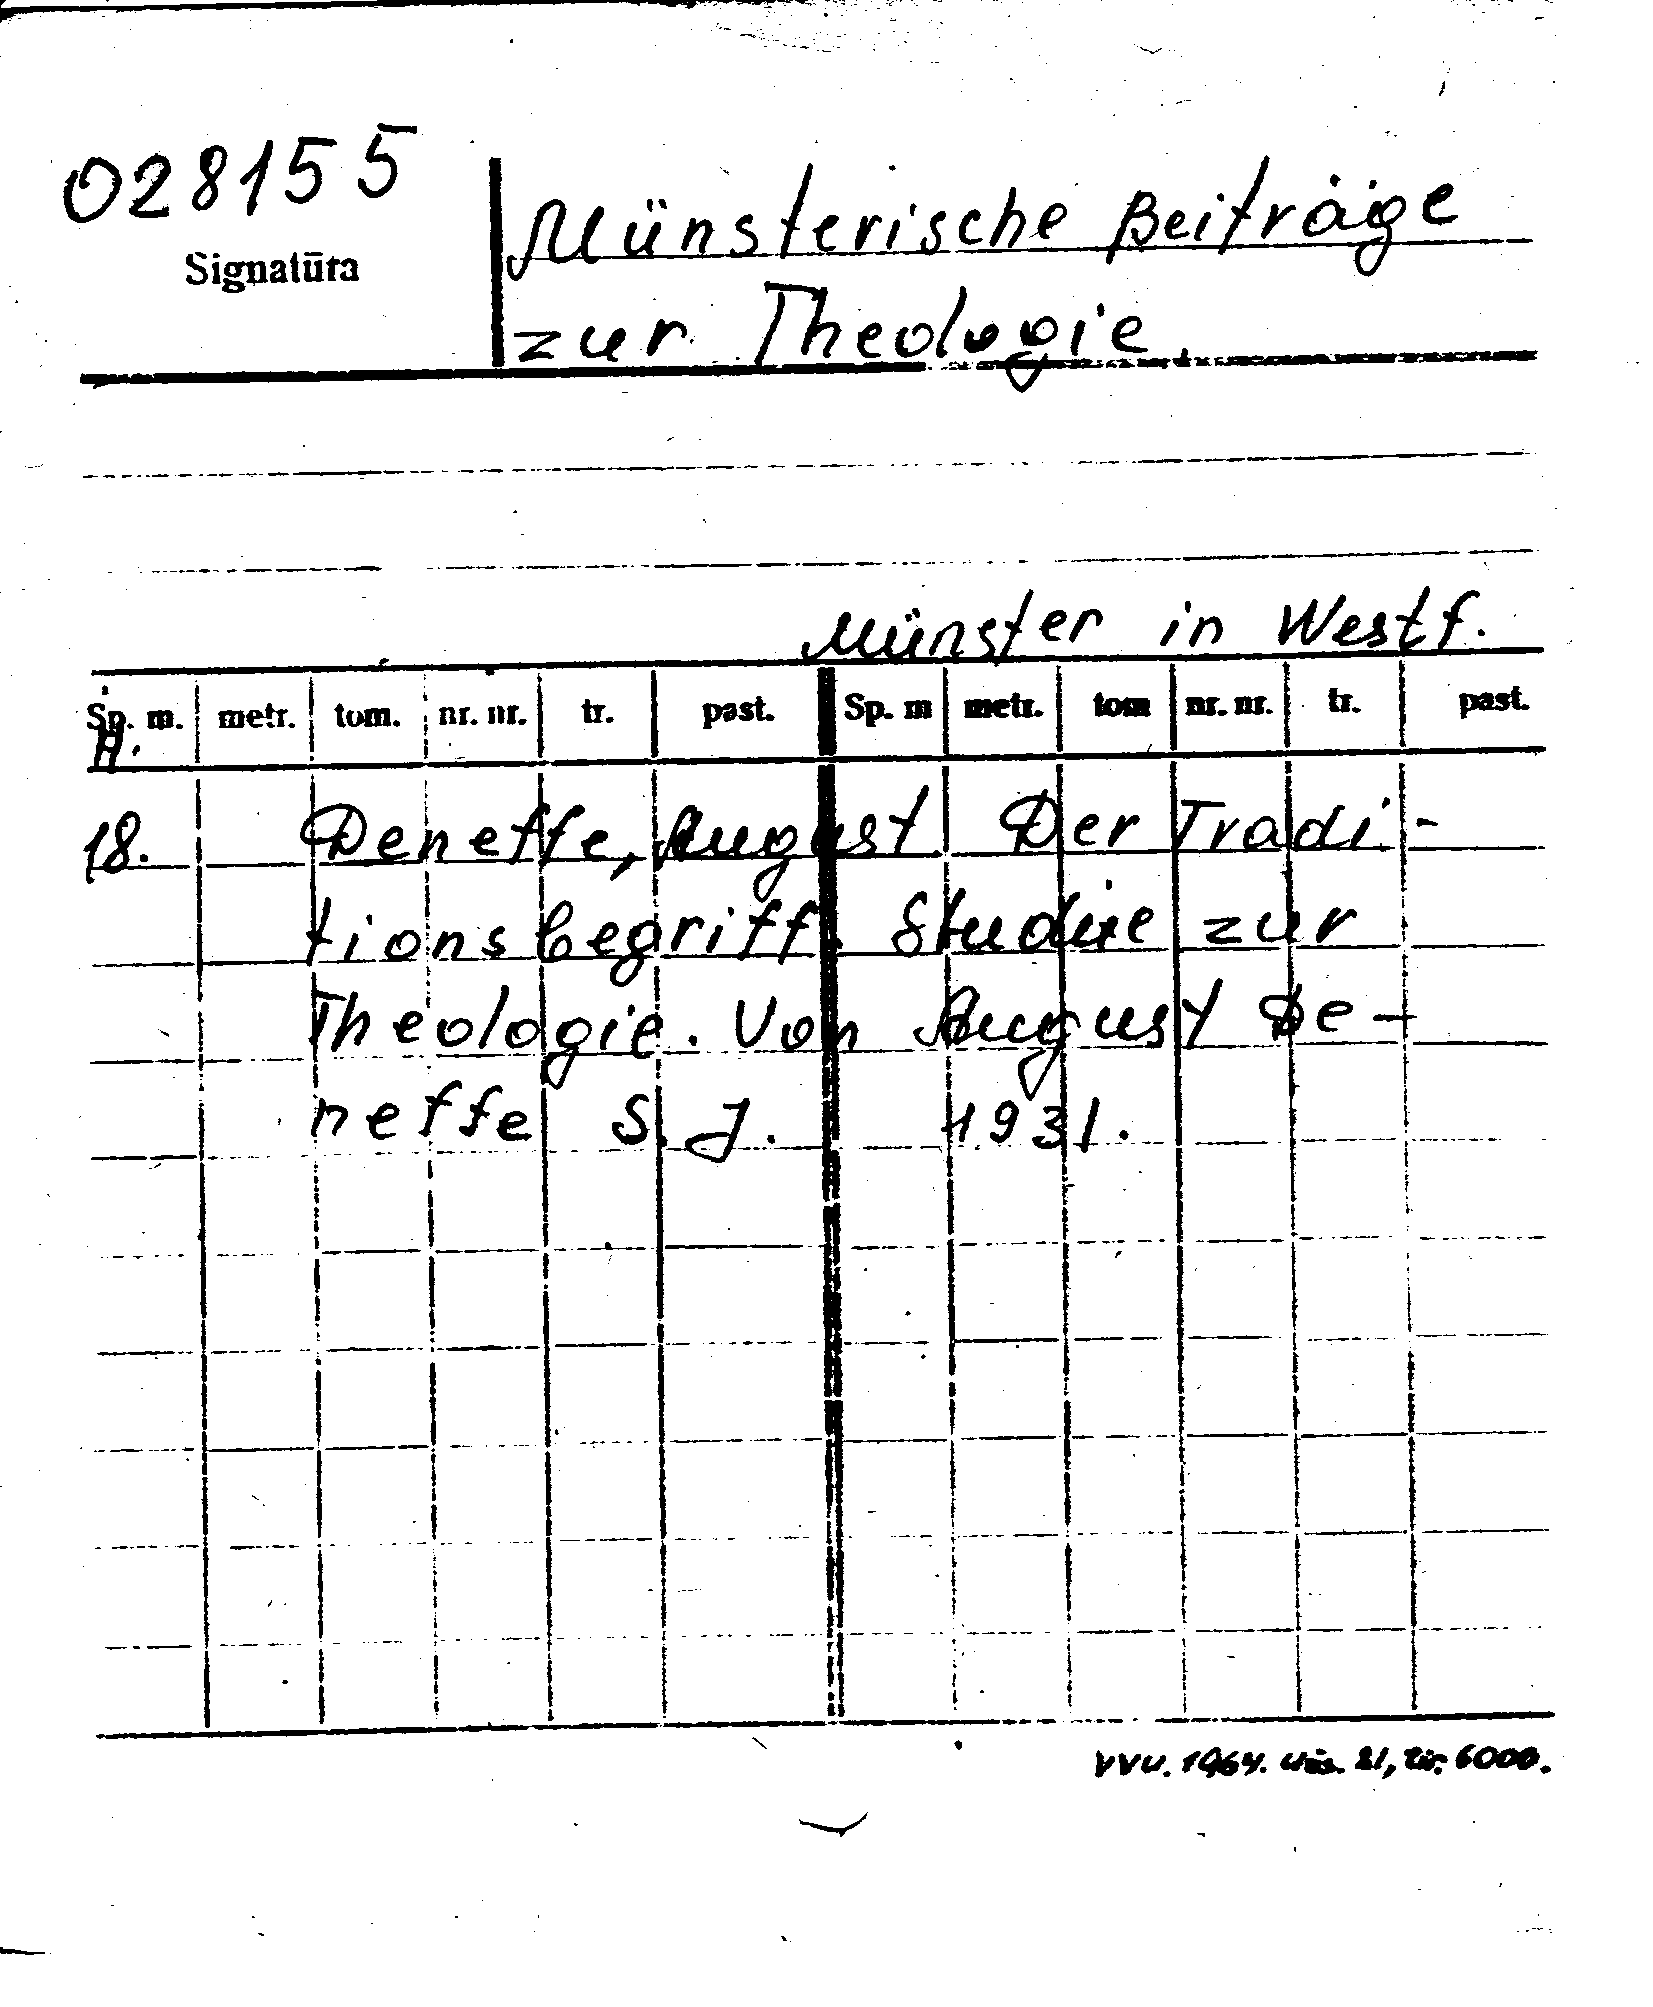 028155
Signatūra
Münsterische Beiträge
zur Theologie.
Münster in Westf.
Sp. m. metr. tom. nr. nr. tr. past. Sp. m metr. tom nr. nr. tr. past.
H.
18. Deneffe, August Der Tradi-
tionsbegriff. Studie zur
Theologie. Von August De-
neffe S. J. 1931.
VVU. 1964. Užs. 81, tir. 6000.